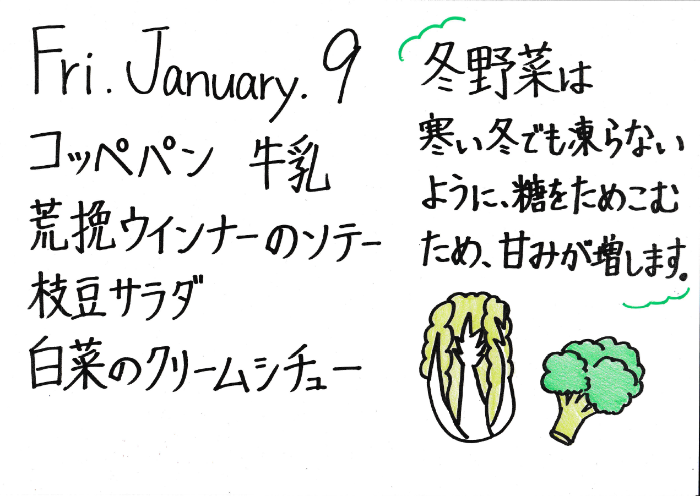 Fri. January. 9
コッペパン 牛乳
荒挽ウインナーのソテー
枝豆サラダ
白菜のクリームシチュー
冬野菜は
寒い冬でも凍らない
ように、糖をためこむ
ため、甘みが増します。